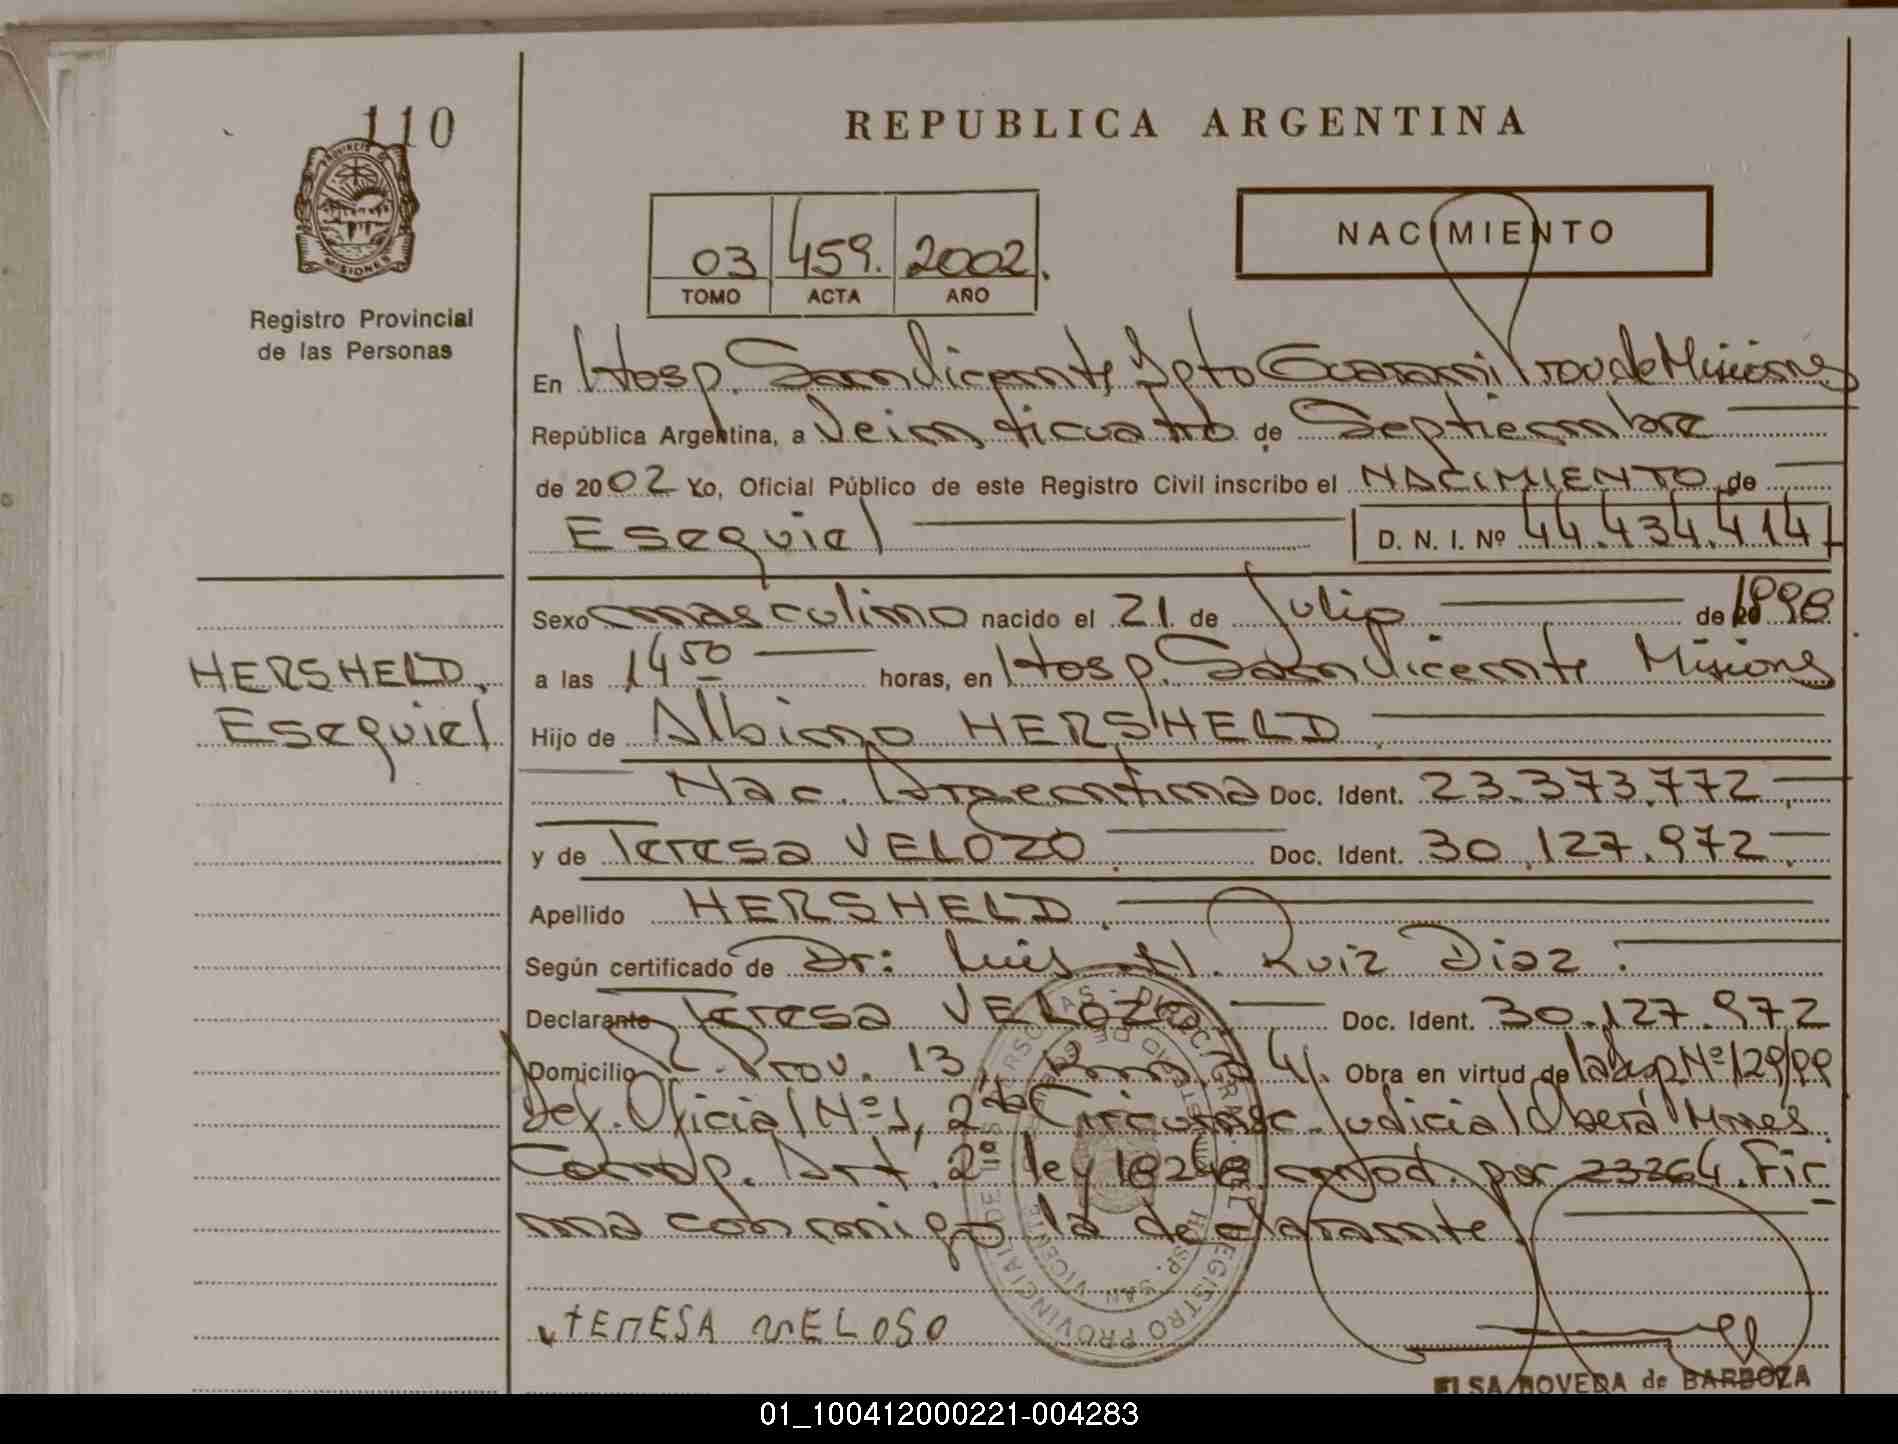 110
REPUBLICA ARGENTINA
PROVINCIA DE MISIONES
Registro Provincial
de las Personas
03 459. 2002.
TOMO ACTA AÑO
NACIMIENTO
En Hosp. San Vicente, Dpto Guarani Prov de Misiones
República Argentina, a Veinticuatro de Septiembre
de 2002 Yo, Oficial Público de este Registro Civil inscribo el NACIMIENTO de
Esequiel D. N. I. Nº 44.434.414
Sexo masculino nacido el 21 de Julio de 1998
HERSHELD,
Esequiel
a las 14 50 horas, en Hosp. San Vicente Misiones
Hijo de Albino HERSHELD
Nac. Argentina Doc. Ident. 23.373.772
y de Teresa VELOZO Doc. Ident. 30.127.972
Apellido HERSHELD
Según certificado de Dr: Luis N. Ruiz Diaz.
Declarante Teresa VELOZO Doc. Ident. 30.127.972
Domicilio R. Prov. 13, Km. 4. Obra en virtud de Nº 129/99
Def. Oficial Nº 1, 2da Circunsc. Judicial Oberá Mnes.
Comp. Art. 2º ley 18248 mod. por 23264. Fir
ma conmigo la declarante.
TERESA VELOSO
REGISTRO PROVINCIAL DE LAS PERSONAS - DIREC. GRAL. DEL
HOSP. SAN VICENTE
ELSA BOVEDA de BARBOZA
01_100412000221-004283